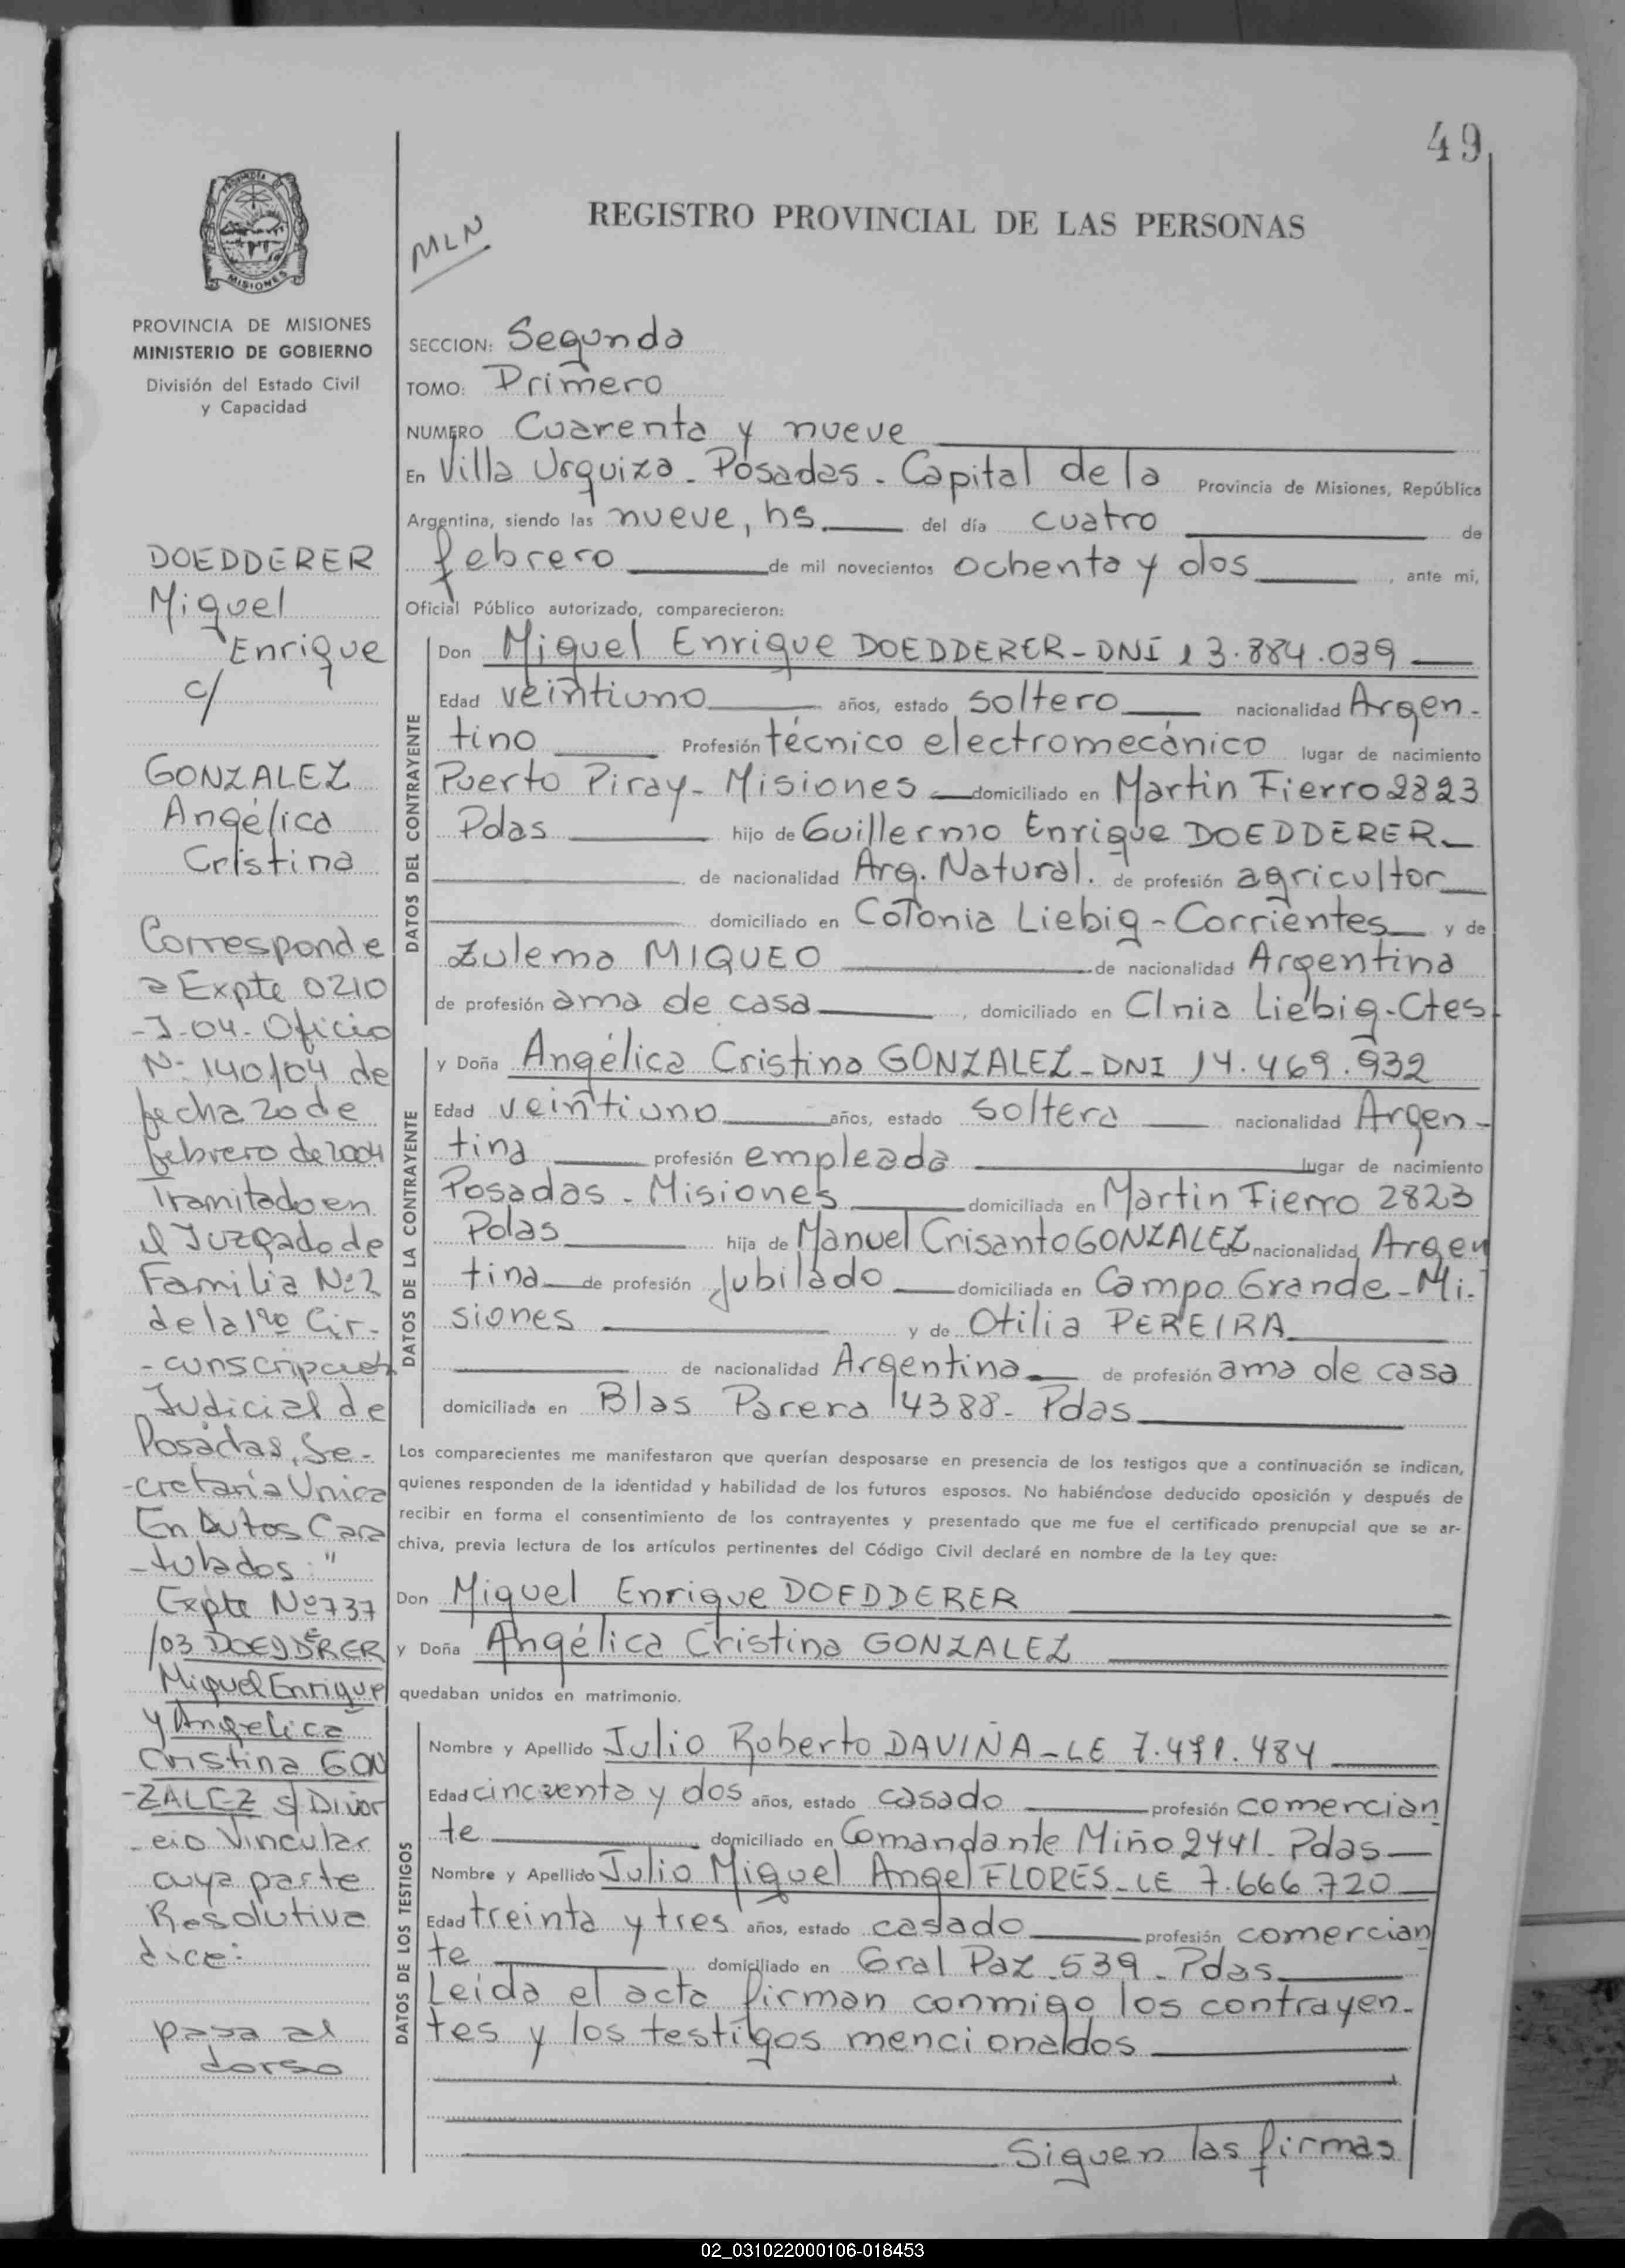 49
MLN
REGISTRO PROVINCIAL DE LAS PERSONAS
PROVINCIA DE MISIONES
MISIONES
PROVINCIA DE MISIONES
MINISTERIO DE GOBIERNO
División del Estado Civil
y Capacidad
DOEDDERER
Miguel
Enrique
c/
GONZALEZ
Angélica
Cristina
Corresponde
a Expte 0210
-J-04- Oficio
Nº 140/04 de
fecha 20 de
febrero de 2004
Tramitado en
el Juzgado de
Familia Nº 2
de la 1ra Cir-
-cunscripcion
Judicial de
Posadas, Se-
-cretaría Unica
En Autos Cara
-tulados: "
Expte Nº 737
/03 DOEDDERER
Miguel Enrique
y Angelica
Cristina GON
-ZALEZ s/ Divor
-cio Vincular
cuya parte
Resolutiva
dice:
pasa al
dorso
SECCION: Segunda
TOMO: Primero
NUMERO Cuarenta y nueve
En Villa Urquiza - Posadas - Capital de la Provincia de Misiones, República
Argentina, siendo las nueve, hs. del día cuatro de
febrero de mil novecientos ochenta y dos, ante mi,
Oficial Público autorizado, comparecieron:
DATOS DEL CONTRAYENTE
Don Miguel Enrique DOEDDERER - DNI 13.884.039
Edad veintiuno años, estado soltero nacionalidad Argen-
tino Profesión técnico electromecánico lugar de nacimiento
Puerto Piray - Misiones domiciliado en Martin Fierro 2823
Pdas hijo de Guillermo Enrique DOEDDERER
de nacionalidad Arg. Natural. de profesión agricultor
domiciliado en Colonia Liebig - Corrientes y de
Zulema MIQUEO de nacionalidad Argentina
de profesión ama de casa, domiciliado en Clnia Liebig - Ctes
DATOS DE LA CONTRAYENTE
y Doña Angélica Cristina GONZALEZ - DNI 14.469.932
Edad veintiuno años, estado soltera nacionalidad Argen-
tina profesión empleada lugar de nacimiento
Posadas - Misiones domiciliada en Martin Fierro 2823
Pdas hija de Manuel Crisanto GONZALEZ de nacionalidad Argen
tina de profesión jubilado domiciliada en Campo Grande - Mi-
siones y de Otilia PEREIRA
de nacionalidad Argentina de profesión ama de casa
domiciliada en Blas Parera 4388 - Pdas
Los comparecientes me manifestaron que querían desposarse en presencia de los testigos que a continuación se indican,
quienes responden de la identidad y habilidad de los futuros esposos. No habiéndose deducido oposición y después de
recibir en forma el consentimiento de los contrayentes y presentado que me fue el certificado prenupcial que se ar-
chiva, previa lectura de los artículos pertinentes del Código Civil declaré en nombre de la Ley que:
Don Miguel Enrique DOEDDERER
y Doña Angélica Cristina GONZALEZ
quedaban unidos en matrimonio.
DATOS DE LOS TESTIGOS
Nombre y Apellido Julio Roberto DAVIÑA - LE 7.471.484
Edad cincuenta y dos años, estado casado profesión comercian
te domiciliado en Comandante Miño 2441 - Pdas
Nombre y Apellido Julio Miguel Angel FLORES - LE 7.666.720
Edad treinta y tres años, estado casado profesión comercian
te domiciliado en Gral Paz 539 - Pdas
Leida el acta firman conmigo los contrayen-
tes y los testigos mencionados
Siguen las firmas
02_031022000106-018453